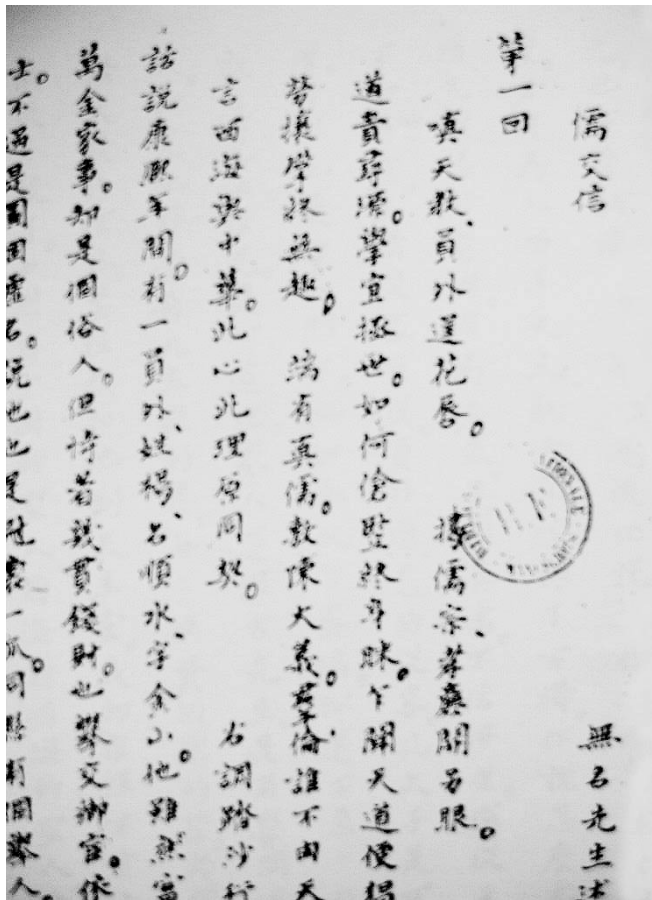 儒交信
無名先生述
第一回
嗔天教、員外逞花唇。 揍儒宗、孝廉開另眼。
道貴尋源。學宜拯世。如何滄墅終身昧。乍聞天道便揭
勞攘學終無趣。 端有真儒。敷陳大義。群倫誰不由天
言西游與中華。此心此理原同契。 右調踏沙行
話說康熙年間。有一員外、姓楊、名順水、字金山。他雖然富
萬金家事。却是個俗人。但恃著幾貫錢財。也攀交鄉宦。依
士。不過是圖個虛名。說也也是 裏一 同縣有個舉人。